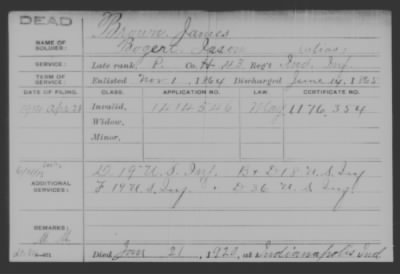 DEAD
NAME OF SOLDIER:
Brown, James
Bogert, Jason (alias)
SERVICE: Late rank, P. Co. H. 43 Reg't Ind. Inf.
TERM OF SERVICE: Enlisted Nov 1, 1864 Discharged June 14, 1865
DATE OF FILING. CLASS. APPLICATION NO. LAW. CERTIFICATE NO.
Apr 28 Invalid, 1414546 May 1176,354
Widow,
Minor,
ADDITIONAL SERVICES:
D. 19" U.S. Inf. B+D 18 U.S. Inf
F 19 U.S. Inf. + D 36 U.S Inf.
REMARKS:
Died Jan 21, 1920, at Indianapolis Ind